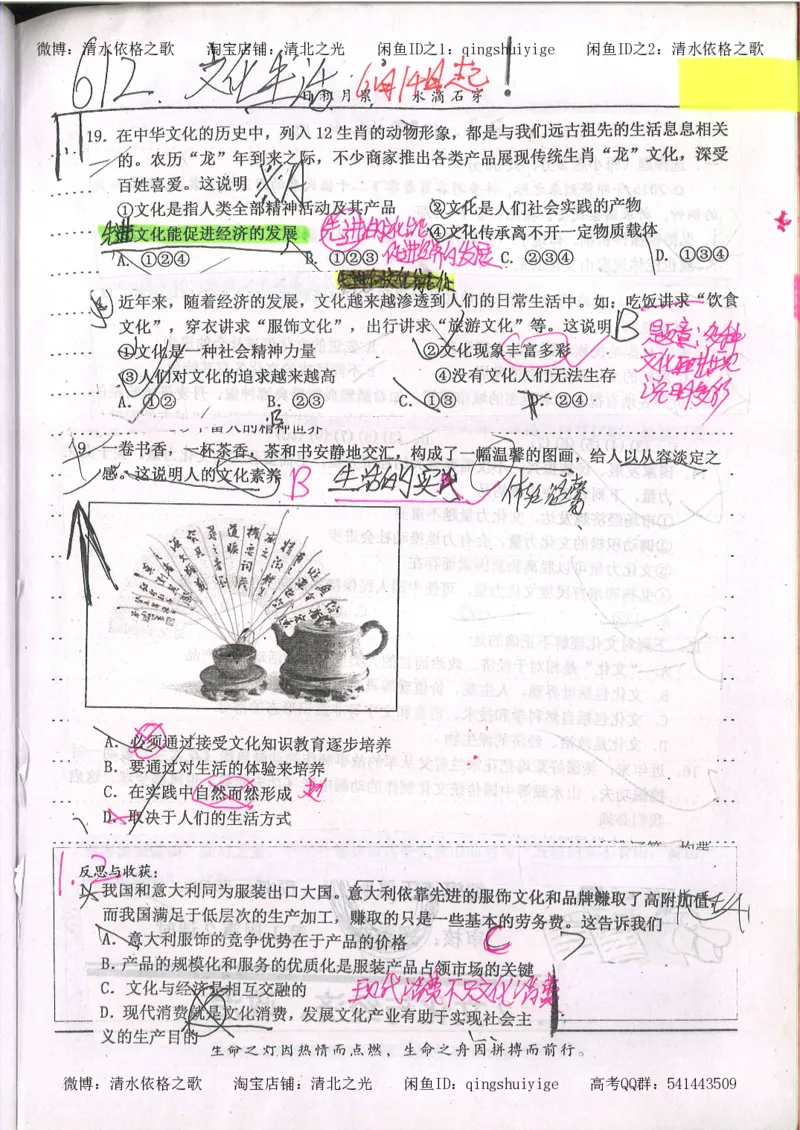 微博：清水依格之歌 淘宝店铺：清北之光 闲鱼ID之1：qingshuiyige 闲鱼ID之2：清水依格之歌
612. 文化生活 6月14日起！
日积月累 水滴石穿
19. 在中华文化的历史中，列入 12 生肖的动物形象，都是与我们远古祖先的生活息息相关
的。农历“龙”年到来之际，不少商家推出各类产品展现传统生肖“龙”文化，深受
百姓喜爱。这说明
①文化是指人类全部精神活动及其产品 ②文化是人们社会实践的产物
先进文化能促进经济的发展 先进的文化能 ④文化传承离不开一定物质载体
促进经济的发展
A. ①②④ B. ①②③ C. ②③④ D. ①③④
近年来，随着经济的发展，文化越来越渗透到人们的日常生活中。如：吃饭讲求“饮食
文化”，穿衣讲求“服饰文化”，出行讲求“旅游文化”等。这说明 B
题意：各种
文化
①文化是一种社会精神力量 ②文化现象丰富多彩
③人们对文化的追求越来越高 ④没有文化人们无法生存
A. ①② B. ②③ C. ①③ D. ②④
丰富人的精神世界
19 一卷书香，一杯茶香，茶和书安静地交汇，构成了一幅温馨的图画，给人以从容淡定之
感。这说明人的文化素养 B 生活的实践 体验
A. 必须通过接受文化知识教育逐步培养
B. 要通过对生活的体验来培养
C. 在实践中自然而然形成
D. 取决于人们的生活方式
1. 2
反思与收获：
1. 我国和意大利同为服装出口大国。意大利依靠先进的服饰文化和品牌赚取了高附加值，
而我国满足于低层次的生产加工，赚取的只是一些基本的劳务费。这告诉我们
A. 意大利服饰的竞争优势在于产品的价格 C
B. 产品的规模化和服务的优质化是服装产品占领市场的关键
C. 文化与经济是相互交融的 现代消费不只文化消费
D. 现代消费就是文化消费，发展文化产业有助于实现社会主
义的生产目的
生命之灯因热情而点燃，生命之舟因拼搏而前行。
微博：清水依格之歌 淘宝店铺：清北之光 闲鱼ID：qingshuiyige 高考QQ群：541443509